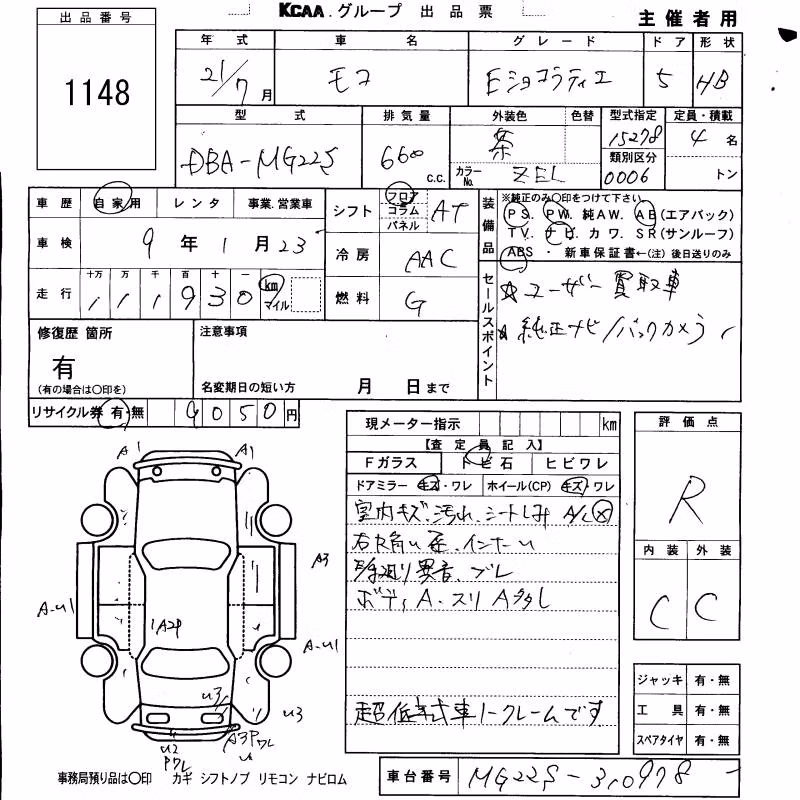 KCAA.グループ 出品票
主催者用
出品番号
1148
年式 車名 グレード ドア 形状
21/7月 モコ Eショコラティエ 5 HB
型式 排気量 外装色 色替 型式指定 定員・積載
DBA-MG22S 660 c.c. 茶 15278 4名
カラーNo. ZEL 類別区分 0006 トン
車歴 自家用 レンタ 事業.営業車
車検 9年1月23
走行 十万 万 千 百 十 一
111930 km マイル
シフト フロア コラム パネル AT
冷房 AAC
燃料 G
装備品 ※純正のみ〇印をつけて下さい
PS. PW. 純AW. AB(エアバック)
TV. ナビ. カワ. SR(サンルーフ)
ABS ・ 新車保証書←(注)後日送りのみ
セールスポイント
☆ユーザー買取車
★純正ナビ/バックカメラ
修復歴 箇所
有
(有の場合は〇印を)
注意事項
名変期日の短い方 月 日まで
リサイクル券 有・無 9050円
現メーター指示 km
【査定員記入】
Fガラス トビ石 ヒビワレ
ドアミラー キズ・ワレ ホイール(CP) キズ・ワレ
室内キズ.汚れ.シートしみ A/C
異音.ブレ
ボディA.スリA多し
超低年式車ノークレームです
評価点
R
内装 外装
C C
A1 A1
A3
A-U1
A-U1
A2P
U3
U3
U2
Pワレ
A3Pワレ
ジャッキ 有・無
工具 有・無
スペアタイヤ 有・無
事務局預り品は〇印 カギ シフトノブ リモコン ナビロム
車台番号 MG22S-310978